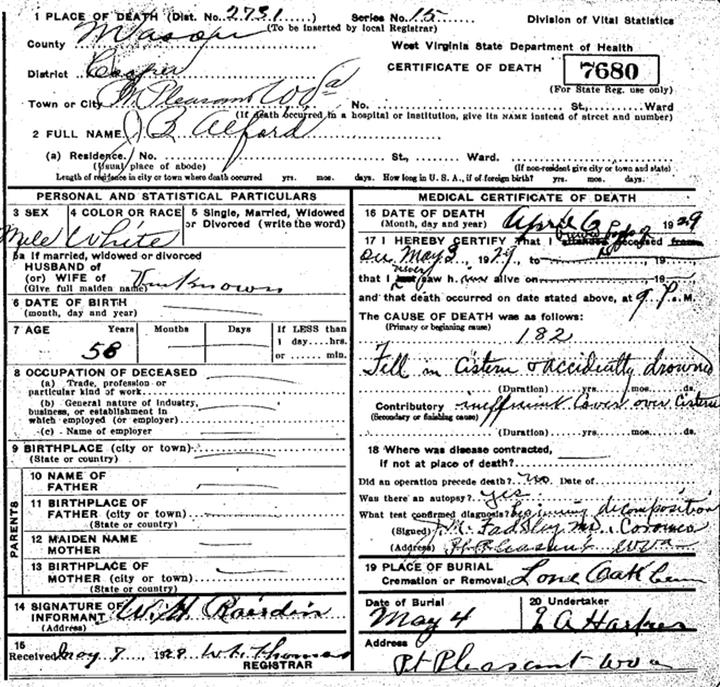 1 PLACE OF DEATH (Dist. No. 2731) Series No. 15 Division of Vital Statistics
(To be inserted by local Registrar)
County Mason West Virginia State Department of Health
District CERTIFICATE OF DEATH 7680
(For State Reg. use only)
Town or City Pt Pleasant W Va No. St., Ward
(If death occurred in a hospital or institution, give its NAME instead of street and number)
2 FULL NAME Alford
(a) Residence. No. St., Ward.
(Usual place of abode) (If non-resident give city or town and state)
Length of residence in city or town where death occurred yrs. mos. days. How long in U. S. A., if of foreign birth? yrs. mos. days.
PERSONAL AND STATISTICAL PARTICULARS
3 SEX 4 COLOR OR RACE 5 Single, Married, Widowed
or Divorced (write the word)
Male White
5a If married, widowed or divorced
HUSBAND of
(or) WIFE of Unknown
(Give full maiden name)
6 DATE OF BIRTH
(month, day and year)
7 AGE Years Months Days If LESS than
1 day....hrs.
58 or ...... min.
8 OCCUPATION OF DECEASED
(a) Trade, profession or
particular kind of work
(b) General nature of Industry,
business, or establishment in
which employed (or employer)
(c) Name of employer
9 BIRTHPLACE (city or town)
(State or country)
PARENTS
10 NAME OF
FATHER
11 BIRTHPLACE OF
FATHER (city or town)
(State or country)
12 MAIDEN NAME
MOTHER
13 BIRTHPLACE OF
MOTHER (city or town)
(State or country)
14 SIGNATURE OF
INFORMANT W. H. Rairdin
(Address)
15
Received May 8, 1929 Thomas
REGISTRAR
MEDICAL CERTIFICATE OF DEATH
16 DATE OF DEATH
(Month, day and year) April 6 1929
17 I HEREBY CERTIFY That I attended deceased from
on May 3 1929, to 19
never
that I last saw h im alive on 19
and that death occurred on date stated above, at 9 P. M.
The CAUSE OF DEATH was as follows:
(Primary or beginning cause)
182
Fell in cistern & accidently drowned
(Duration) yrs. mos. ds.
Contributory inefficient Cover over Cistern
(Secondary or finishing cause)
(Duration) yrs. mos. ds.
18 Where was disease contracted,
if not at place of death?
Did an operation precede death? no Date of
Was there an autopsy? yes
What test confirmed diagnosis? beginning decomposition
(Signed) M.D. Coroner
(Address) Pt Pleasant W Va
19 PLACE OF BURIAL
Cremation or Removal Lone Oak Cem
Date of Burial 20 Undertaker
May 4
Address
Pt Pleasant W Va